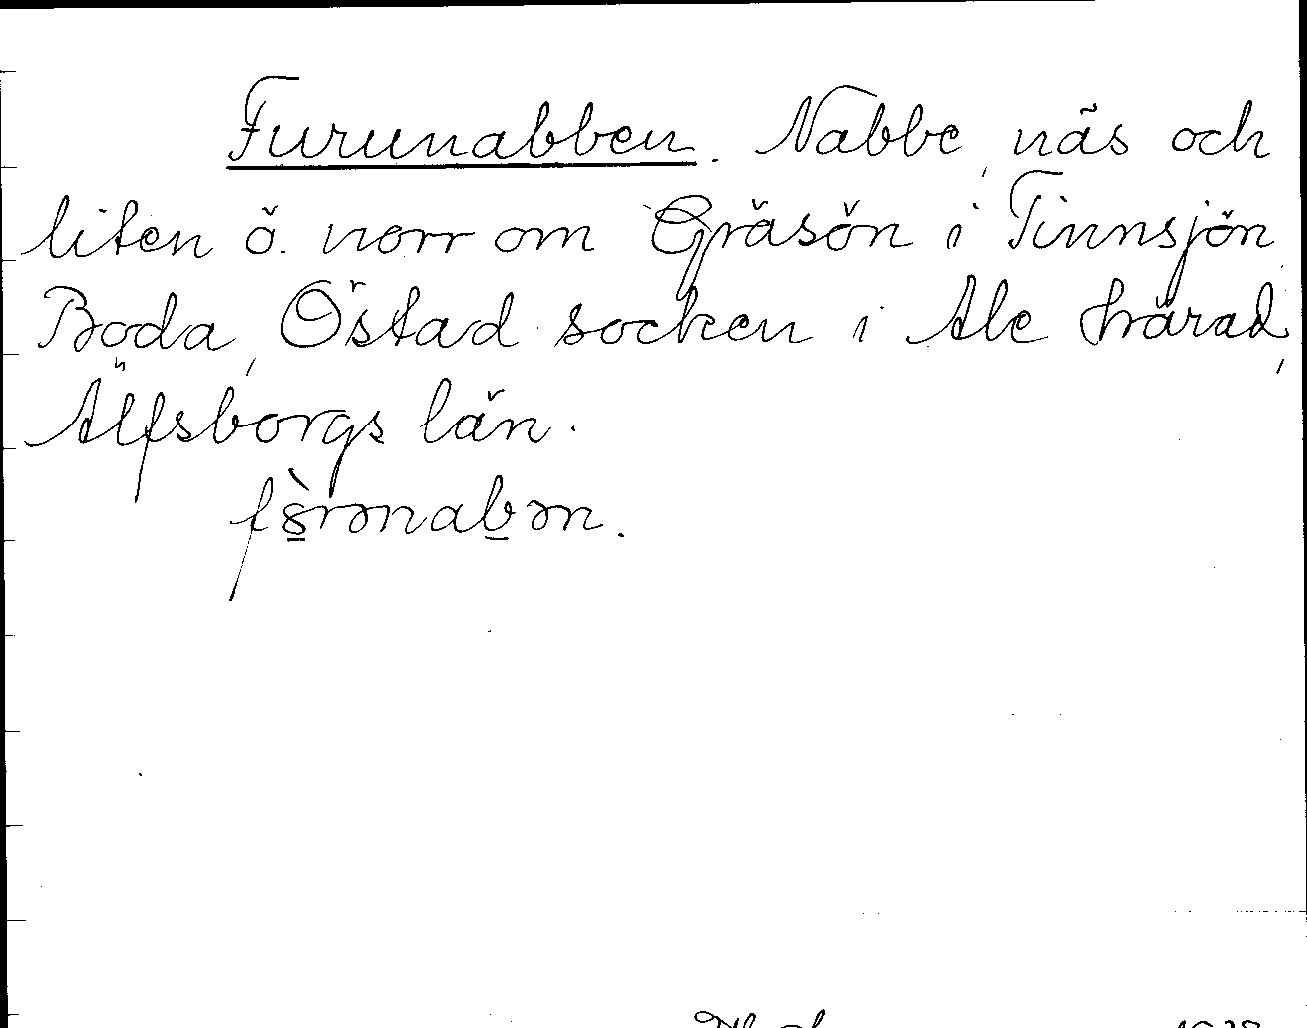 Furunabben. Nabbe, näs och
liten ö. norr om Gräsön i Tinnsjön,
Boda, Östad socken i Ale härad,
Älfsborgs län.